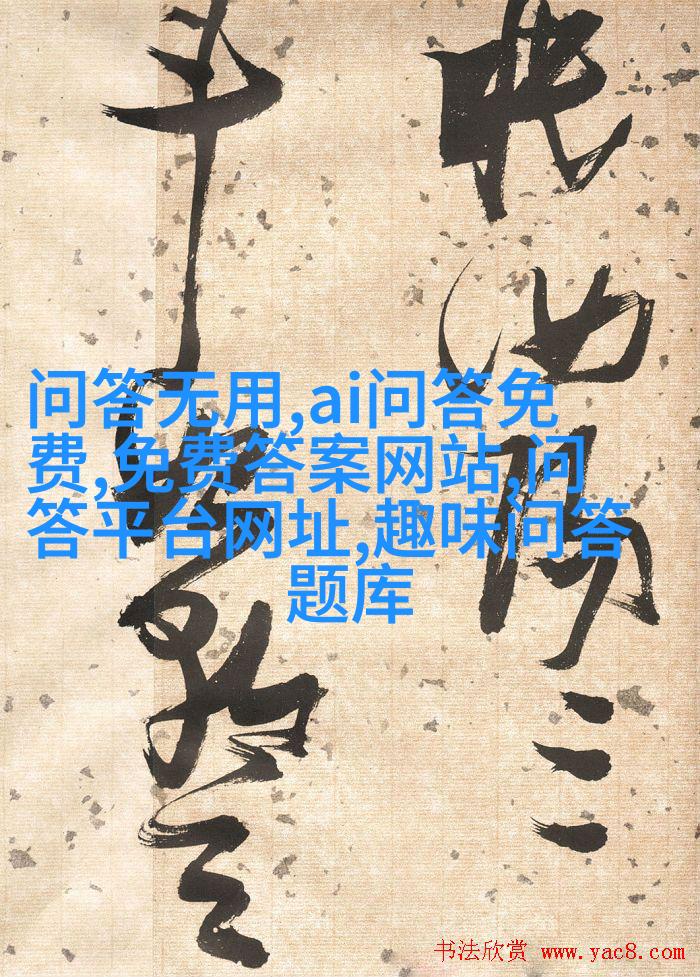 眠汝阳三
斗始朝天
问答无用,ai问答免
费,免费答案网站,问
答平台网址,趣味问答
题库
书法欣赏 www.yac8.com